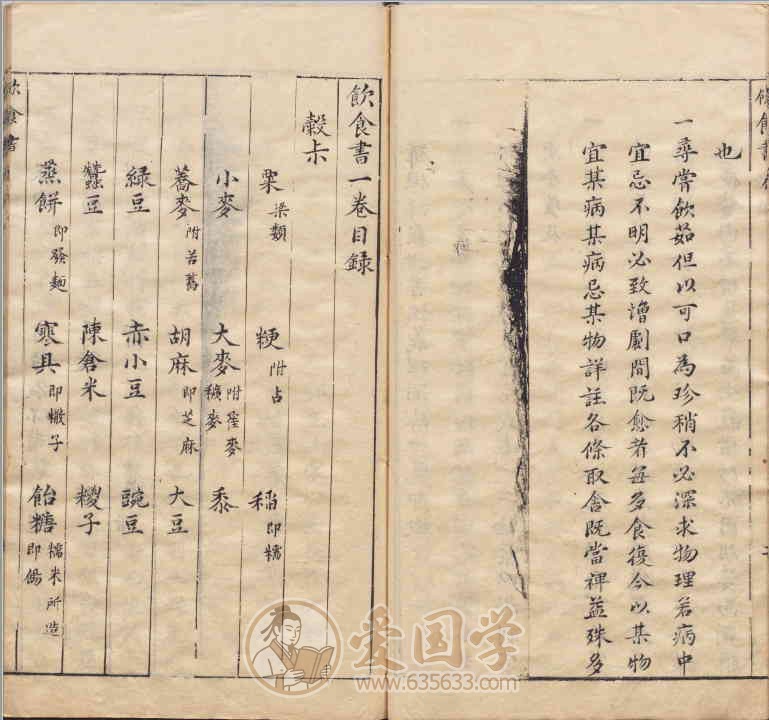 也
一尋嘗飲茹但以可口為珍稍不必深求物理若病中
宜忌不明必致譄劇間既愈者每多食復今以某物
宜某病某病忌某物詳註各條取舍既當裨益殊多
飲食書一卷目録
穀尗
粟 梁類 粳 附占 稻 即糯
小麥 大麥 附雀麥穬麥 黍
蕎麥 附苦蕎 胡麻 即芝麻 大豆
綠豆 赤小豆 豌豆
蠶豆 陳倉米 糉子
蒸餅 即發麵 寒具 即子 飴糖 糯米所造即餳
飲食書
爱国学
www.635633.com